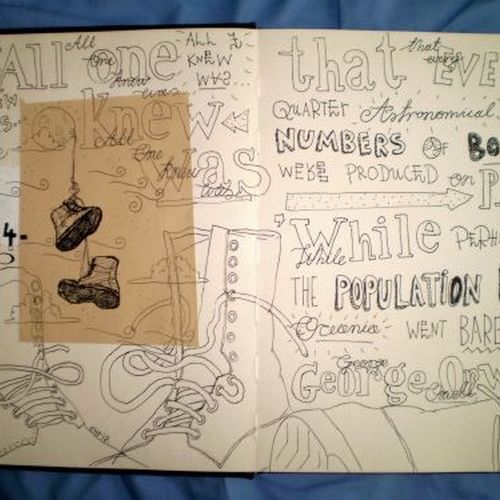 All one
knew
was
All
one
knew
was
ALL
KNEW
WAS
All
One
knew
was
4.
that EVE
that
every
QUARTER Astronomical
NUMBERS OF BO
WERE PRODUCED on P
While PERH
While
THE POPULATION
Oceania WENT BARE
George
George Orw
Orwell